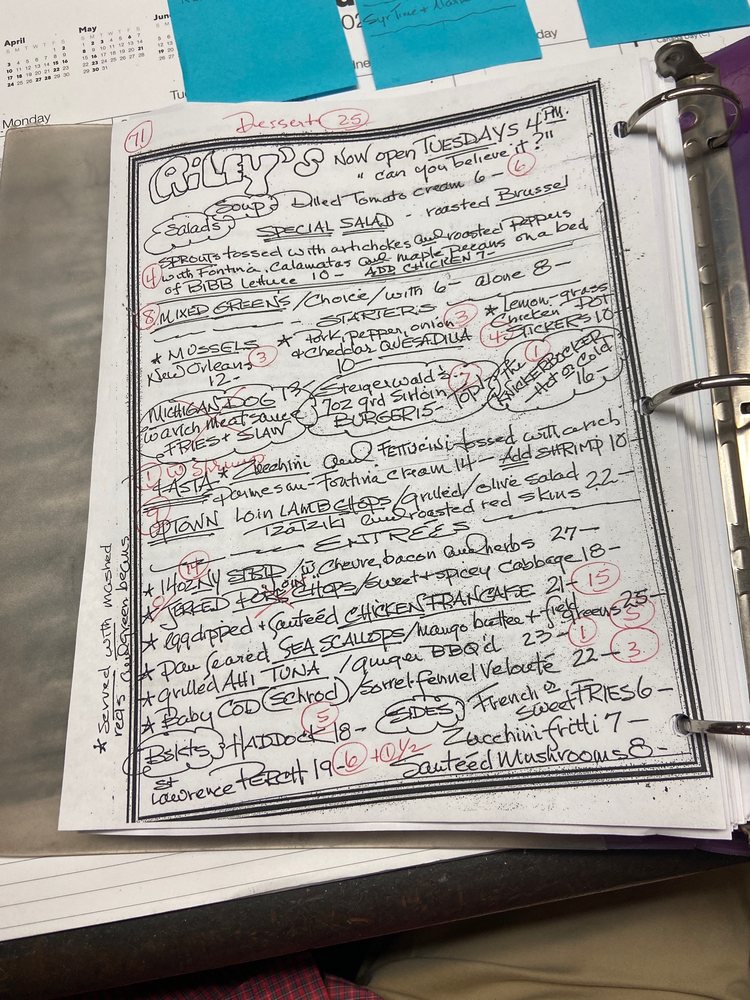 April
May
June
Monday
71
Desserts 25
RiLEY'S Now open TUESDAYS 4 PM.
"can you believe it?"
Soup Dilled Tomato cream 6- 6
Salads SPECIAL SALAD - roasted Brussel
SPROUTS tossed with artichokes and roasted Peppers
4 with Fontina, Calamatas and maple Pecans on a bed
of BiBB Lettuce 10- ADD CHICKEN 7-
8 MIXED GREENS /Choice/with 6- alone 8-
STARTERS
* MUSSELS New Orleans 12- 3
* Pork, pepper, onion + Cheddar QUESADILLA 10- 3
* Lemon-grass Chicken POT STICKERS 10- 4
MICHIGAN DOG 13
w a rich meat sauce
FRIES + SLAW
Steigerwald's 7
7oz grd Sirloin
BURGER 15-
Top of the 1
KNICKERBOCKER
Hot or Cold
16-
1 w Shrimp
PASTA * Zucchini and FETTUCINI tossed with a rich
+ Parmesan-Fontina cream 14- Add SHRIMP 10-
UPTOWN Loin LAMB CHOPS/Grilled/olive salad 22-
Tzatziki and roasted red skins
ENTREES
14
* 14oz NY STRIP/w Chevre, bacon and herbs 27-
* JERKED PORK LOIN CHOPS/Sweet + spicey Cabbage 18-
* eggdipped + sauteed CHICKEN FRANCAISE 21- 15
* pan seared SEA SCALLOPS/mango butter + field greens 25- 5
* grilled AHI TUNA / ginger BBQ'd 23- 1
* Baby COD (Schrod)/Sorrel fennel Velouté 22- 3
* Served with mashed
reds and green beans
Bskts HADDOCK 18- 5
St Lawrence PERCH 19- 6 + 1 1/2
SIDES French or Sweet FRIES 6-
Zucchini fritti 7-
Sauteed Mushrooms 8-